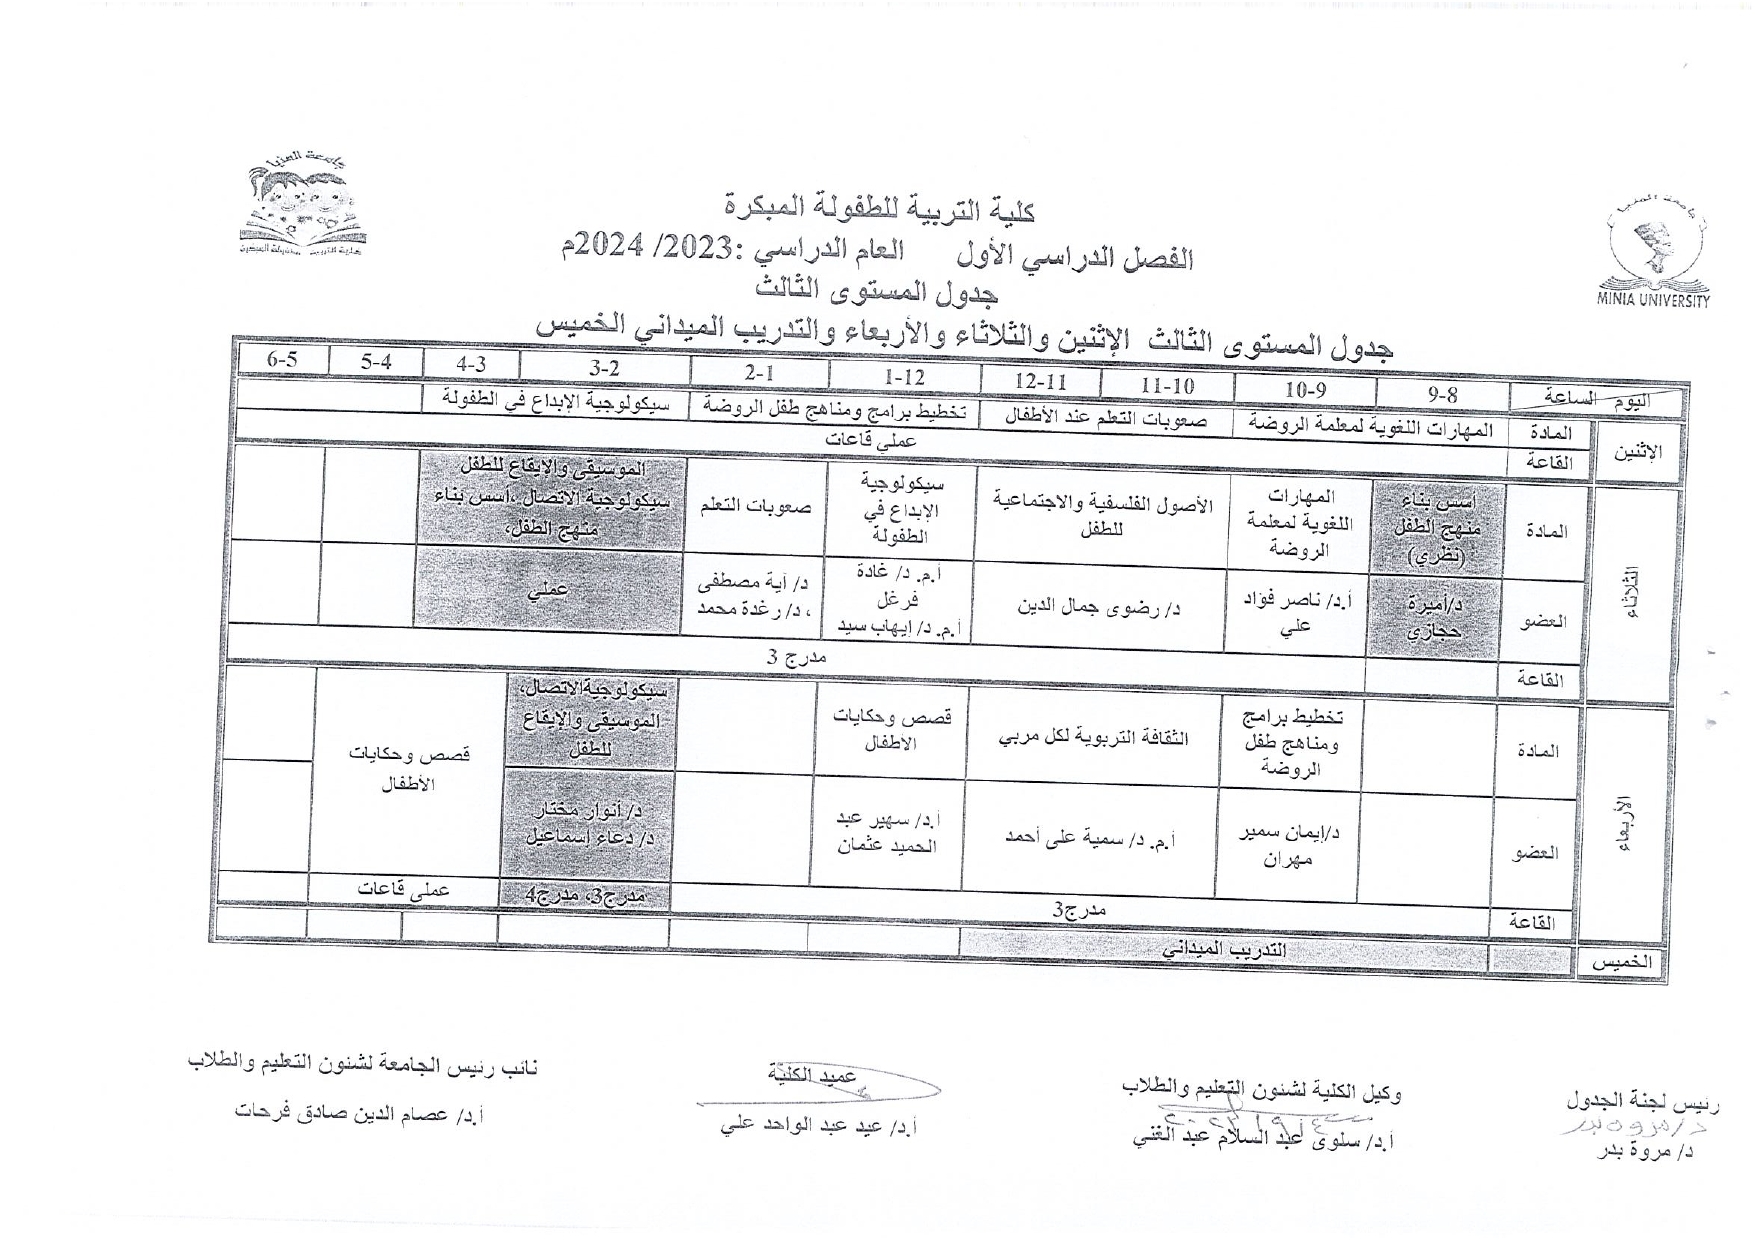 جامعة المنيا
MINIA UNIVERSITY
جامعة المنيا
كلية التربية للطفولة المبكرة
الفصل الدراسي الأول العام الدراسي :2023/ 2024م
جدول المستوى الثالث
جدول المستوى الثالث الإثنين والثلاثاء والأربعاء والتدريب الميداني الخميس
اليوم الساعة 9-8 10-9 11-10 12-11 1-12 2-1 3-2 4-3 5-4 6-5
الإثنين
المادة المهارات اللغوية لمعلمة الروضة صعوبات التعلم عند الأطفال تخطيط برامج ومناهج طفل الروضة سيكولوجية الإبداع في الطفولة
القاعة عملي قاعات
الثلاثاء
المادة
أسس بناء
منهج الطفل
(نظري)
المهارات
اللغوية لمعلمة
الروضة
الأصول الفلسفية والاجتماعية
للطفل
سيكولوجية
الإبداع في
الطفولة
صعوبات التعلم
الموسيقى والإيقاع للطفل
سيكولوجية الاتصال ،اسس بناء
منهج الطفل،
العضو
د/أميرة
حجازي
أ.د/ ناصر فؤاد
علي
د/ رضوى جمال الدين
أ.م. د/ غادة
فرغل
أ.م. د/ إيهاب سيد
د/ آية مصطفى
، د/ رغدة محمد
عملي
القاعة مدرج 3
الأربعاء
المادة
تخطيط برامج
ومناهج طفل
الروضة
الثقافة التربوية لكل مربي
قصص وحكايات
الأطفال
سيكولوجيةالاتصال،
الموسيقى والإيقاع
للطفل
قصص وحكايات
الأطفال
العضو
د/إيمان سمير
مهران
أ.م. د/ سمية على أحمد
أ.د/ سهير عبد
الحميد عثمان
د/ أنوار مختار
د/ دعاء اسماعيل
القاعة مدرج3 مدرج3، مدرج4 عملي قاعات
الخميس التدريب الميداني
رئيس لجنة الجدول
د/ مروه بدر
د/ مروة بدر
وكيل الكلية لشئون التعليم والطلاب
أ.د/ سلوى عبد السلام عبد الغني
عميد الكلية
أ.د/ عيد عبد الواحد علي
نائب رئيس الجامعة لشئون التعليم والطلاب
أ.د/ عصام الدين صادق فرحات